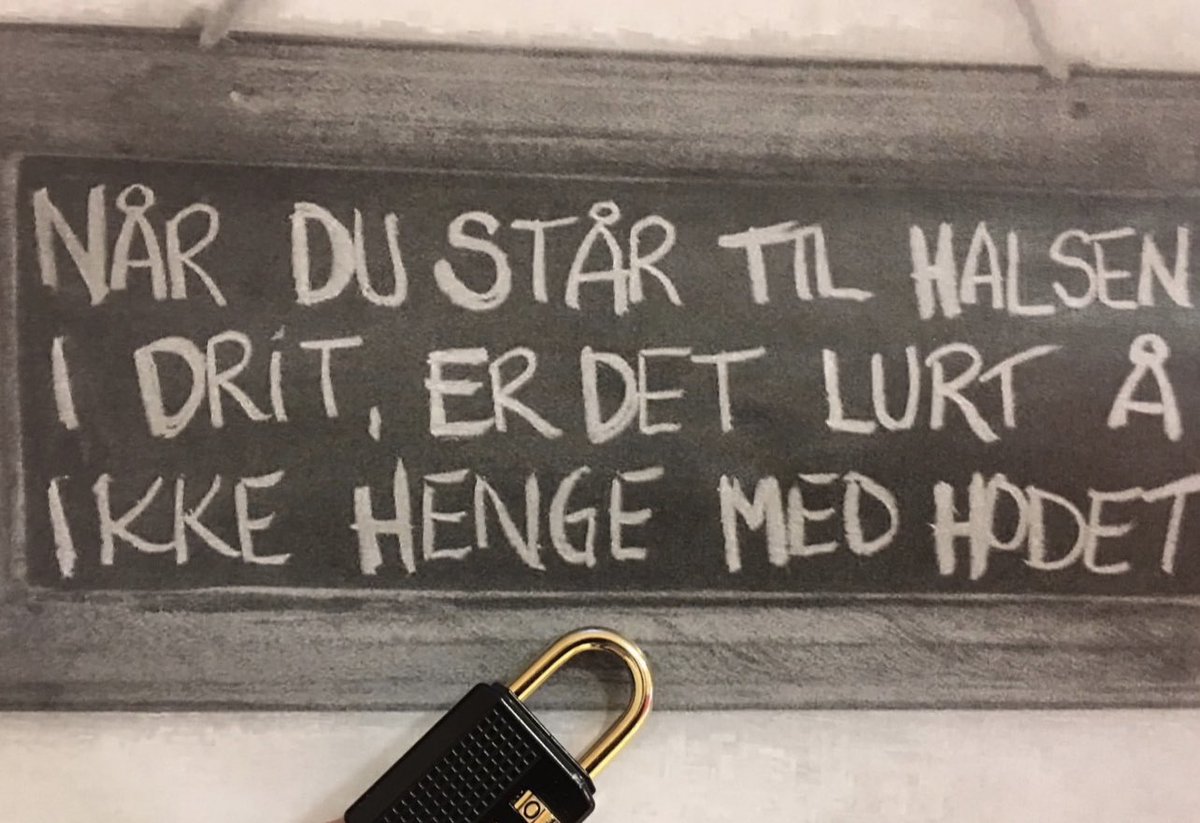 NÅR DU STÅR TIL HALSEN
I DRIT, ER DET LURT Å
IKKE HENGE MED HODET